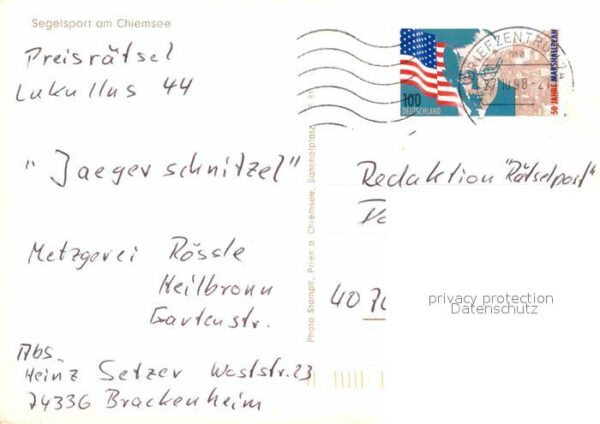 Segelsport am Chiemsee
Preisrätsel
Lukullus 44
"Jaegerschnitzel"
Metzgerei Rössle
Heilbronn
Gartenstr.
Abs.
Heinz Setzer Weststr. 23
74336 Brackenheim
Photo Stampfl, Prien a Chiemsee, Bahnhofplatz
BRIEFZENTRUM
100
DEUTSCHLAND
50 JAHRE MARSHALLPLAN
Redaktion "Rätselpost"
40 70
privacy protection
Datenschutz